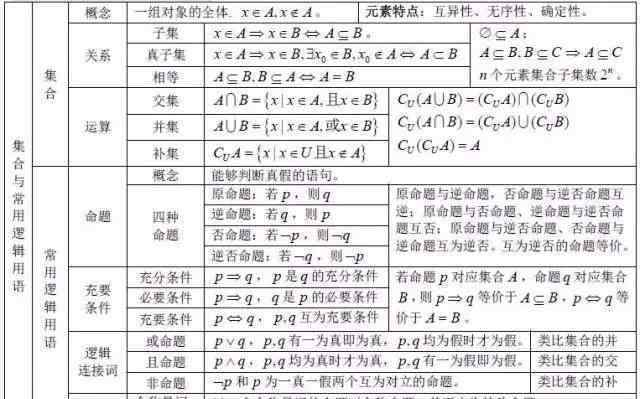 集合与常用逻辑用语
集合
概念 一组对象的全体. x∈A, x∉A。 元素特点：互异性、无序性、确定性。
关系
子集 x∈A⇒x∈B⇔A⊆B。 ∅⊆A；
真子集 x∈A⇒x∈B,∃x₀∈B,x₀∉A⇔A⊂B A⊆B,B⊆C⇒A⊆C
相等 A⊆B,B⊆A⇔A=B n个元素集合子集数2ⁿ。
运算
交集 A∩B={x|x∈A,且x∈B} C_U(A∪B)=(C_UA)∩(C_UB)
并集 A∪B={x|x∈A,或x∈B} C_U(A∩B)=(C_UA)∪(C_UB)
补集 C_UA={x|x∈U且x∉A} C_U(C_UA)=A
常用逻辑用语
命题
概念 能够判断真假的语句。
四种命题
原命题：若p，则q 原命题与逆命题，否命题与逆否命题互
逆命题：若q，则p 逆；原命题与否命题、逆命题与逆否命
否命题：若¬p，则¬q 题互否；原命题与逆否命题、否命题与
逆否命题：若¬q，则¬p 逆命题互为逆否。互为逆否的命题等价。
充要条件
充分条件 p⇒q，p是q的充分条件 若命题p对应集合A，命题q对应集合
必要条件 p⇒q，q是p的必要条件 B，则p⇒q等价于A⊆B，p⇔q等
充要条件 p⇔q，p,q互为充要条件 价于A=B。
逻辑连接词
或命题 p∨q，p,q有一为真即为真，p,q均为假时才为假。 类比集合的并
且命题 p∧q，p,q均为真时才为真，p,q有一为假即为假。 类比集合的交
非命题 ¬p和p为一真一假两个互为对立的命题。 类比集合的补